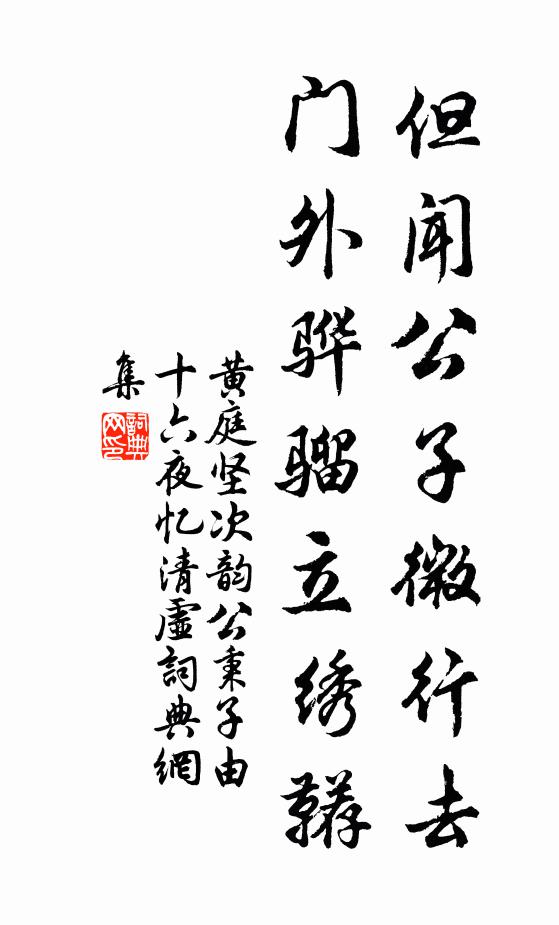 但闻公子微行去
门外骅骝立绣鞯
黄庭坚次韵公秉子由
十六夜忆清虚詞典網
集
詞典
网印